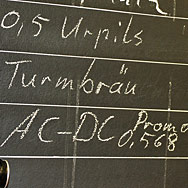 0,5 Urpils
Turmbräu
AC-DC Promo
0,568